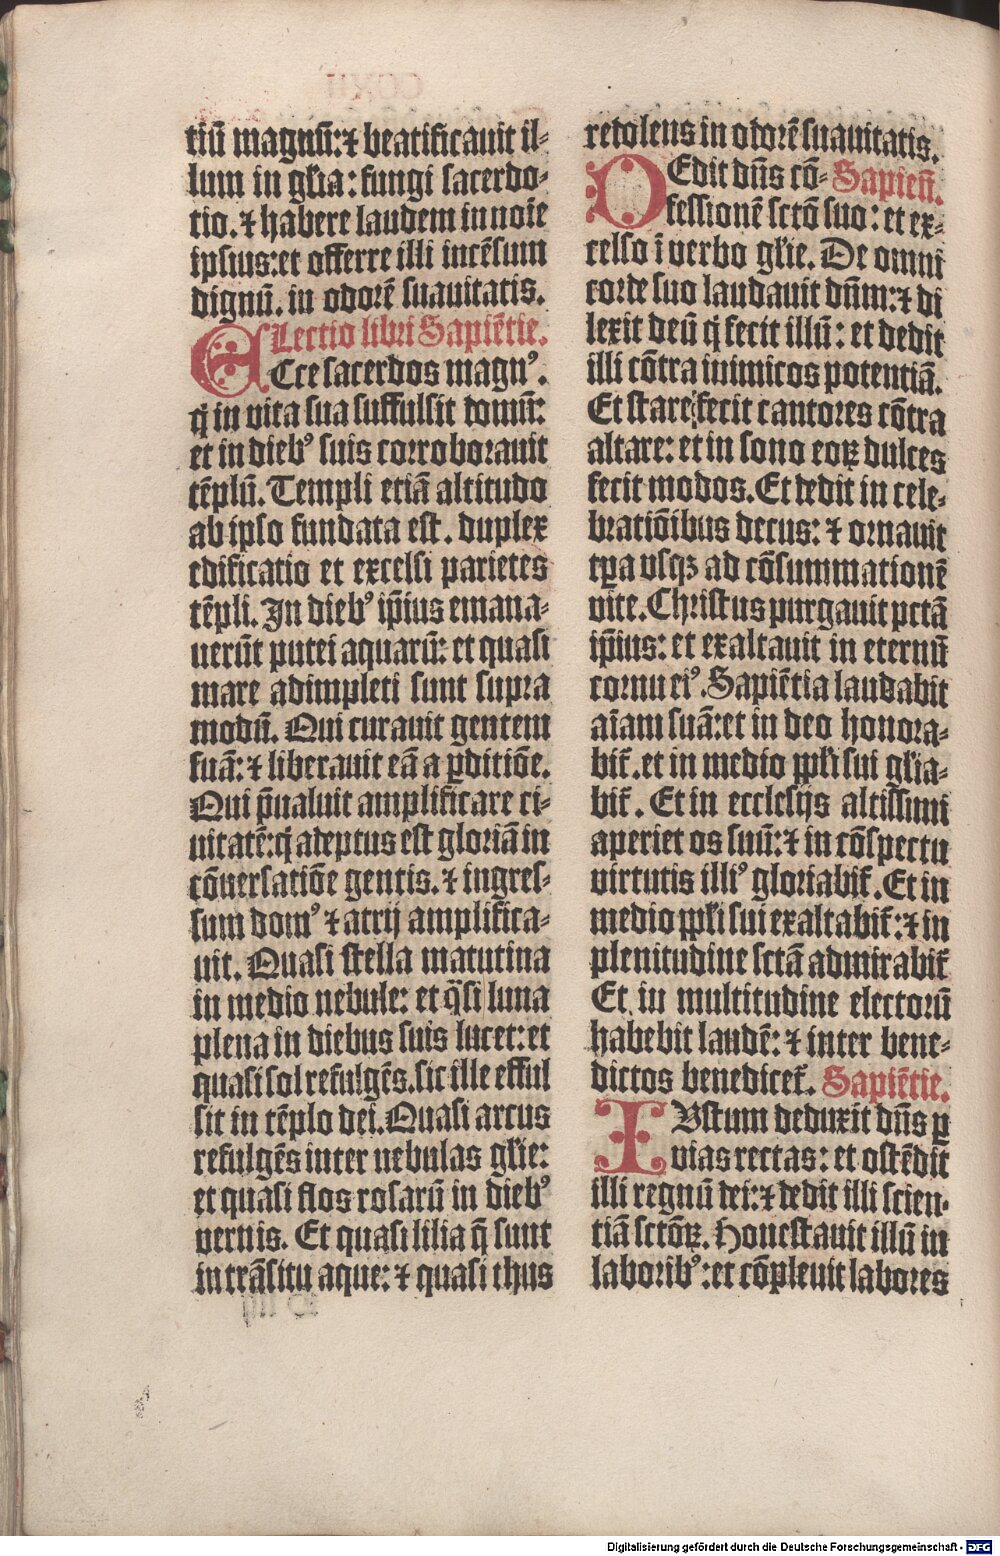 tiū magnū: ⁊ beatificauit il⸗
lum in gl̄ia: fungi sacerdo⸗
tio. ⁊ habere laudem in noīe
ipsius: et offerre illi incēsum
dignū. in odorē suauitatis.
Lectio libri Sapiētie.
ECce sacerdos magnꝰ.
q̇ in vita sua suffulsit domū:
et in diebꝰ suis corroborauit
tēplū. Templi etiā altitudo
ab ipso fundata est. duplex
edificatio et excelsi parietes
tēpli. In diebꝰ ip̄ius emana⸗
uerūt putei aquarū: et quasi
mare adimpleti sunt supra
modū. Qui curauit gentem
suā: ⁊ liberauit eā a ꝑditiōe.
Qui p̄ualuit amplificare ci⸗
uitatē: q̇ adeptus est gloriā in
cōuersatiōe gentis. ⁊ ingres⸗
sum domꝰ ⁊ atrij amplifica⸗
uit. Quasi stella matutina
in medio nebule: et q̄si luna
plena in diebus suis lucet: et
quasi sol refulgēs. sic ille efful
sit in tēplo dei. Quasi arcus
refulgēs inter nebulas gl̄ie:
et quasi flos rosarū in diebꝰ
vernis. Et quasi lilia q̄ sunt
in trāsitu aque: ⁊ quasi thus
redolens in odorē suauitatis.
DEdit dn̄s cō⸗ Sapien̄.
fessionē sctō suo: et ex⸗
celso ī verbo gl̄ie. De omni
corde suo laudauit dn̄m: ⁊ di
lexit deū q̇ fecit illū: et dedit
illi cōtra inimicos potentiā.
Et stare fecit cantores cōtra
altare: et in sono eoꝝ dulces
fecit modos. Et dedit in cele⸗
bratiōibus decus: ⁊ ornauit
tꝑa vsqꝫ ad cōsummationē
vite. Christus purgauit pctā
ip̄ius: et exaltauit in eternū
cornu eiꝰ. Sapiētia laudabit
aīam suā: et in deo honora⸗
bit̄. et in medio ppl̄i sui gl̄ia⸗
bit̄. Et in ecclesijs altissimi
aperiet os suū: ⁊ in cōspectu
virtutis illiꝰ gloriabit̄. Et in
medio ppl̄i sui exaltabit̄: ⁊ in
plenitudine sctā admirabit̄
Et in multitudine electorū
habebit laudē: ⁊ inter bene⸗
dictos benedicet̄. Sapiētie.
IUstum deduxit dn̄s ꝑ
vias rectas: et ostēdit
illi regnū dei: ⁊ dedit illi scien⸗
tiā sctōꝝ. Honestauit illū in
laboribꝰ: et cōpleuit labores
Digitalisierung gefördert durch die Deutsche Forschungsgemeinschaft - DFG